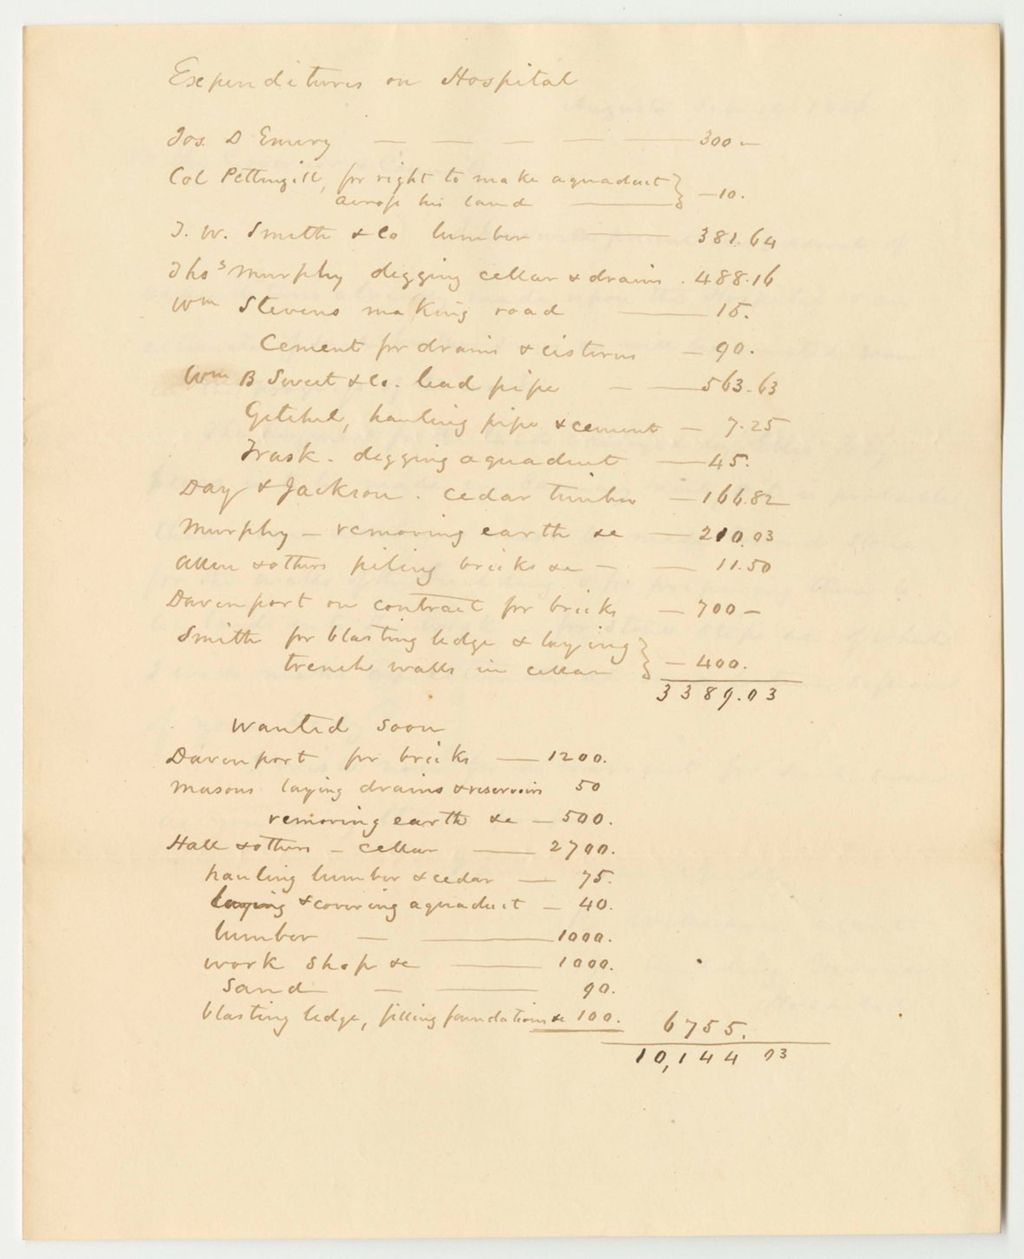 Expenditures on Hospital
Jos. D Emery — — — — 300 —
Col Pettingill, for right to make aquaduct }
across his land — — 10.
J. W. Smith & Co lumber — 381.64
Thos Murphy digging cellar & drains . 488.16
Wm Stevens making road — 15.
Cement for drains & cisterns — 90.
Wm B Sweet & Co. lead pipe — — 563.63
Getchel, hauling pipe & cement — 7.25
Trask. digging aquaduct — 45.
Day & Jackson. cedar timber — 166.82
Murphy — removing earth &c — 210.03
Allen & others piling bricks &c — — 11.50
Davenport on contract for bricks — 700 —
Smith for blasting ledge & laying }
trench walls in cellar — 400.
3389.03
Wanted soon
Davenport for bricks — 1200.
Masons laying drains & reservoirs 50
removing earth &c — 500.
Hall & others — cellar — 2700.
hauling lumber & cedar — 75.
laying & covering aquaduct — 40.
lumber — — 1000.
work shop &c — 1000.
Sand — — 90.
blasting ledge, filling foundations &c 100. 6755.
10,144 03